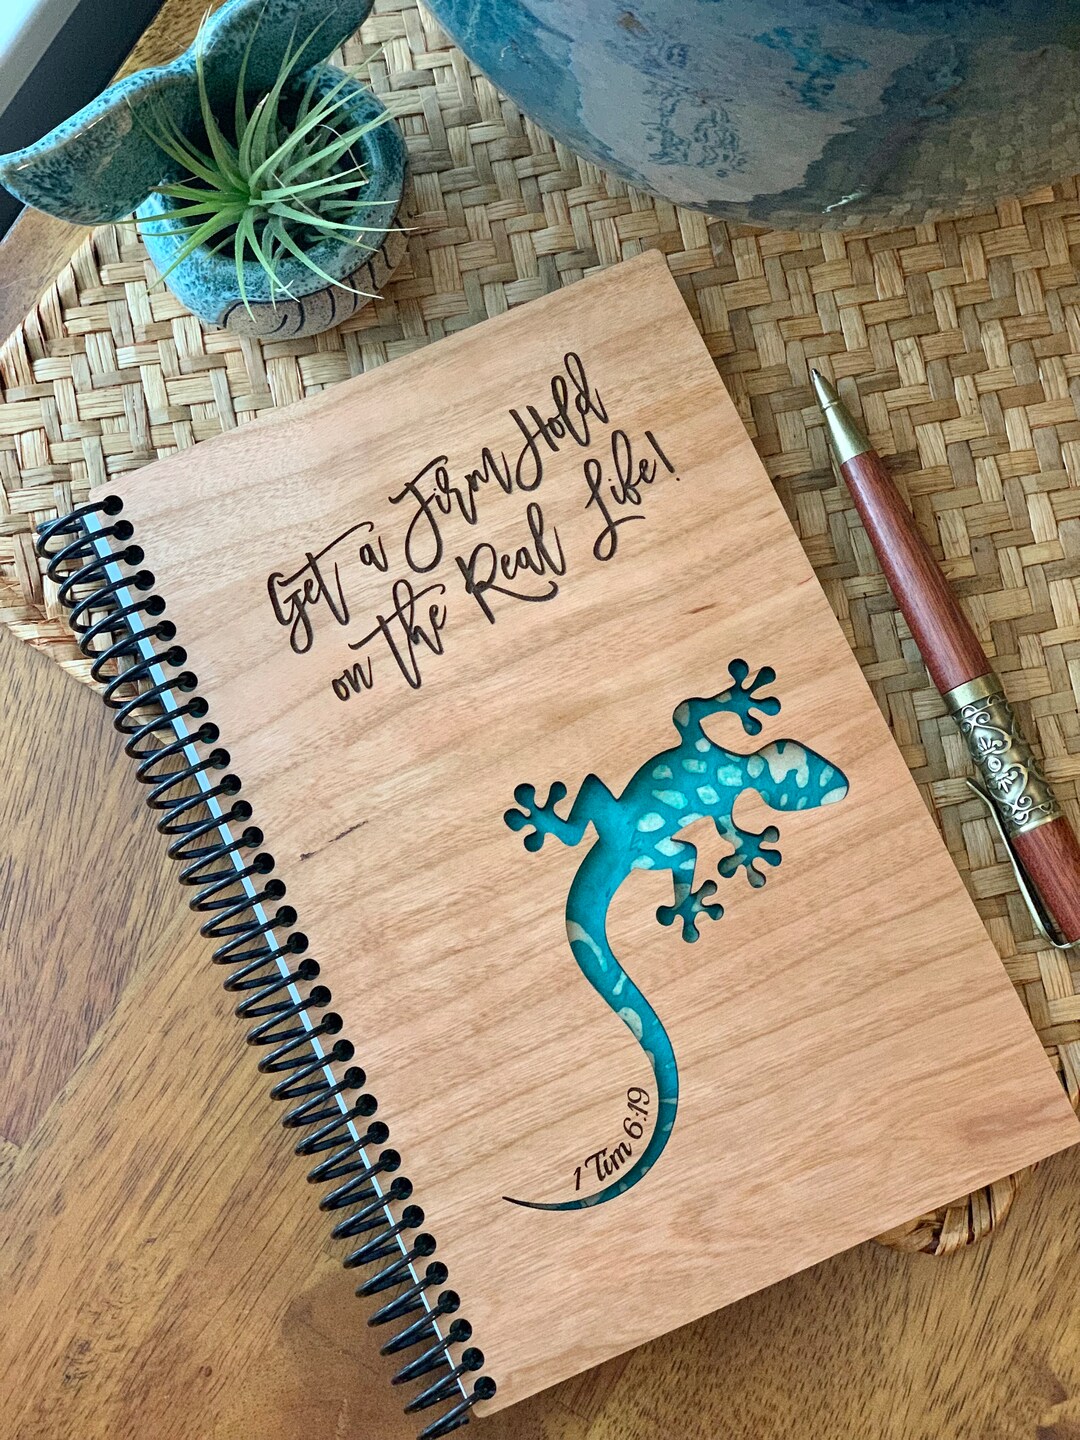 Get a Firm Hold
on the Real Life!
1 Tim 6:19